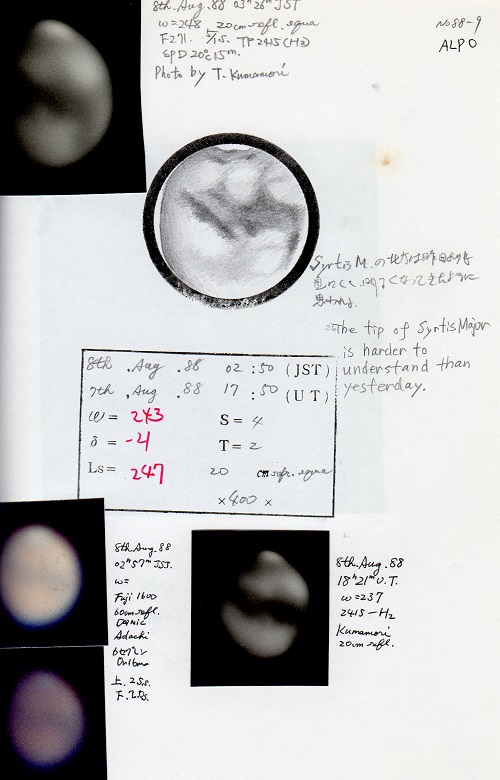 8th. Aug. 88 03h 26m JST
w=248 20cm refl. equa
F271. TP2415 (H2)
SPD 20°C 15m.
Photo by T. Kumamori
No 88-9
ALPO
Syrtis M. の北方は昨日よりも
思われる。
The tip of Syrtis Major
is harder to
understand than
yesterday.
8th . Aug . 88 02 : 50 (JST)
7th . Aug . 88 17 : 50 (UT)
ω = 243 S = 4
δ = -4 T = 2
Ls = 247 20 cm refr. equa
×400 ×
8th. Aug. 88
02h 57m JST.
w=
Fuji 1600
60cm refl.
Adachi
上. 2s.
下.
8th. Aug. 88
18h 21m U.T.
w=237
2415-H2
Kumamori
20cm refl.